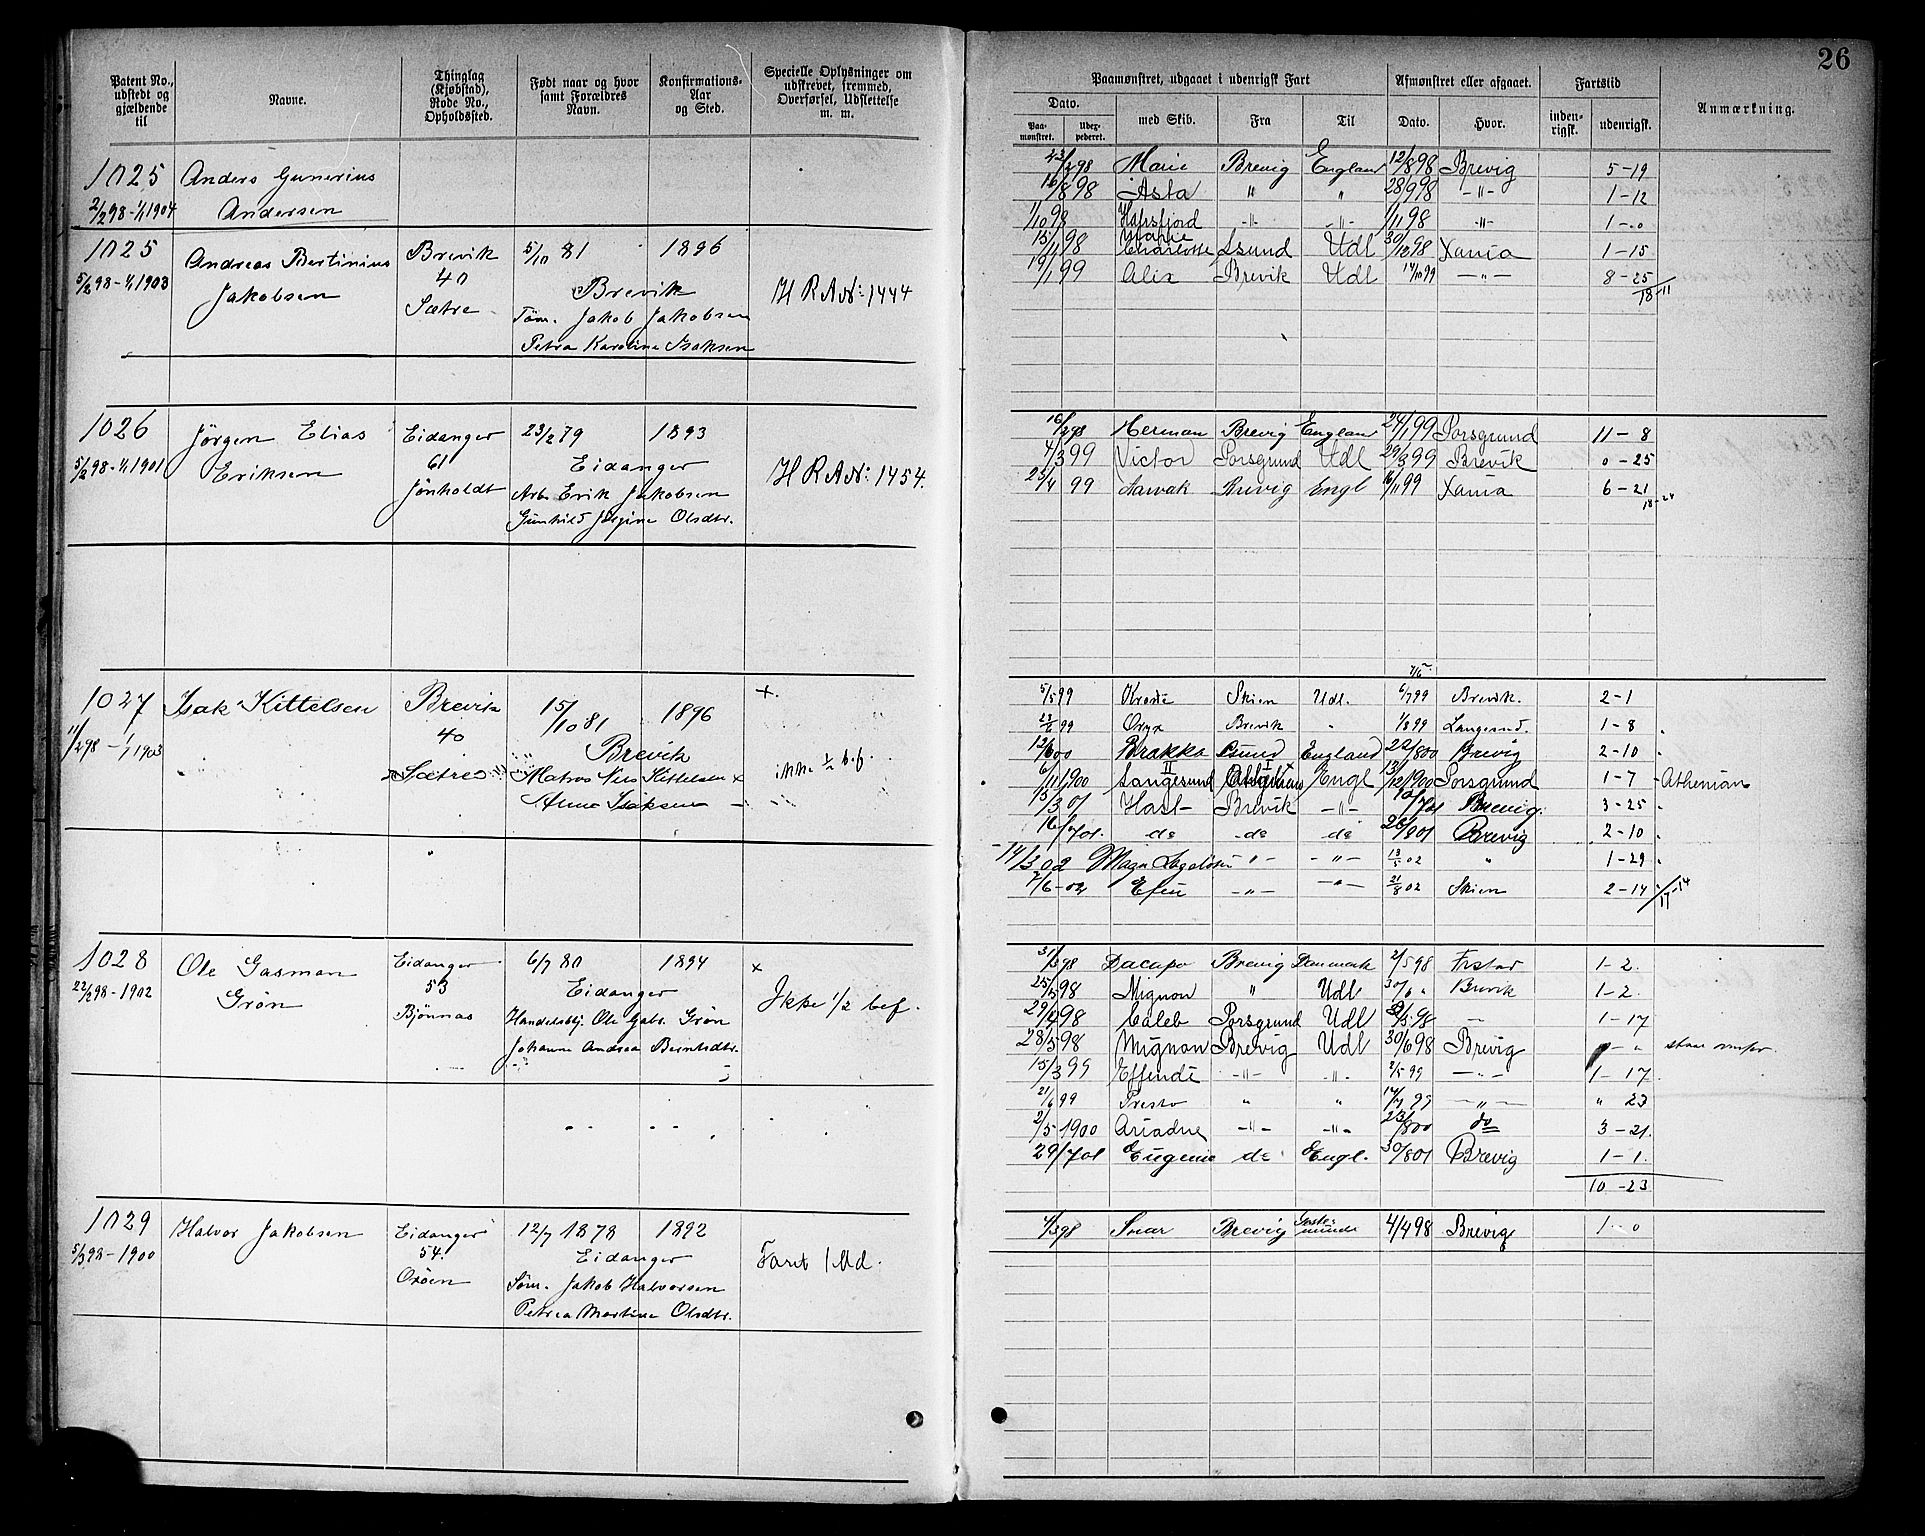 26
Patent No., udstedt og gjældende til
Navne.
Thinglag (Kjøbstad), Rode No., Opholdssted.
Født naar og hvor samt Forældres Navn.
Konfirmations-Aar og Sted.
Specielle Oplysninger om udskrevet, fremmed, Overførsel, Udslettelse m. m.
Paamønstret, udgaaet i udenrigsk Fart
Afmønstret eller afgaaet.
Fartstid
Anmærkning.
Dato.
Paa-mønstret.
med Skib.
Fra
Til
Dato.
Hvor.
inden-rigsk.
udenrigsk.
1025 Anders Gunerius
2/2 98 - 1/1 1904 Andersen
1025 Andreas Bertinius Brevik 5/10 81 1896
5/2 98 - 1/1 1903 Jakobsen 40 Brevik H R A N: 1444
Sætre Tøm. Jakob Jakobsen
Petra Karoline Isaksen
1026 Jörgen Elias Eidanger 23/2 79 1893
5/2 98 - 1/1 1901 Eriksen 61 Eidanger H R A N: 1454.
Jönholdt Arb. Erik Jakobsen
Gunhild Jörgine Olsdtr.
1027 Isak Kittelsen Brevik 15/10 81 1896 +
11/2 98 - 1/1 1903 40 Brevik ikke 1/2 b.f.
Sætre Matros Nils Kittelsen
Anne Isaksen
1028 Ole Gasman Eidanger 6/7 80 1894 x
22/2 98 - 1902 Grön 53 Eidanger Ikke 1/2 bef.
Bjönnæs Handelsbtj. Ole Gabr. Grön
Johanne Andrea Berntsdtr.
1029 Halvor Jakobsen Eidanger 12/7 1878 1892
5/3 98 - 1900 54. Eidanger Faret 1 Md.
Oröen Söm. Jakob Halvorsen
Petrea Martine Olsdtr.
Marie Brevig England 12/8 98 Brevig 5-19
16/8 98 Asta " " 28/9 98 -"- 1-12
1/10 98 Hafrsfjord -"- -"- 1/11 98 -"- 1-0
15/11 98 Marie Charlotte Lsund Udl 30/12 98 Xania 1-15
19/1 99 Alix Brevik Udl 14/10 99 -"- 8-25
18-11
16/2 98 Herman Brevig England 24/1 99 Porsgrund 11-8
4/3 99 Victor Porsgrund Udl 29/3 99 Brevik 0-25
25/4 99 Narvak Brevig Engl 16/11 99 Xania 6-21
18-24
5/5 99 Skien Udl. 6/7 99 Brevik. 2-1
23/6 99 Oryx Brevik " 1/8 99 Langesund. 1-8
12/6 00 Brakka England 22/8 00 Brevig 2-10
6/11 1900 Langesund Engl 13/12 1900 Porsgrund 1-7 Athenian
15/3 01 Brevik -"- 10/7 01 Brevig. 3-25
16/7 01. do do do 26/9 01 Brevig 2-10
14/3 02 -"- -"- 13/5 02 " 1-29
7/6 - 02 -"- -"- 21/8 02 Skien 2-14
17-14
31/3 98 Dacapo Brevig Danmark 2/5 98 Frstad 1-2.
Mignon " Udl Brevik 1-2.
29/4 98 Caleb Porsgrund Udl 1-17
28/5 98 Mignon Brevig Udl 30/6 98 Brevig
15/3 99 Effendi -"- -"- 2/5 99 -"- 1-17
21/6 99 Presto " " 14/7 99 -"- " 23
2/5 1900 Ariadne -"- -"- 23/8 00 do 3-21.
29/7 01 Eugenie do Engl. 30/8 01 Brevig 1-1.
10-23
4/3 98 Snar Brevig Geste-münde 4/4 98 Brevig 1-0